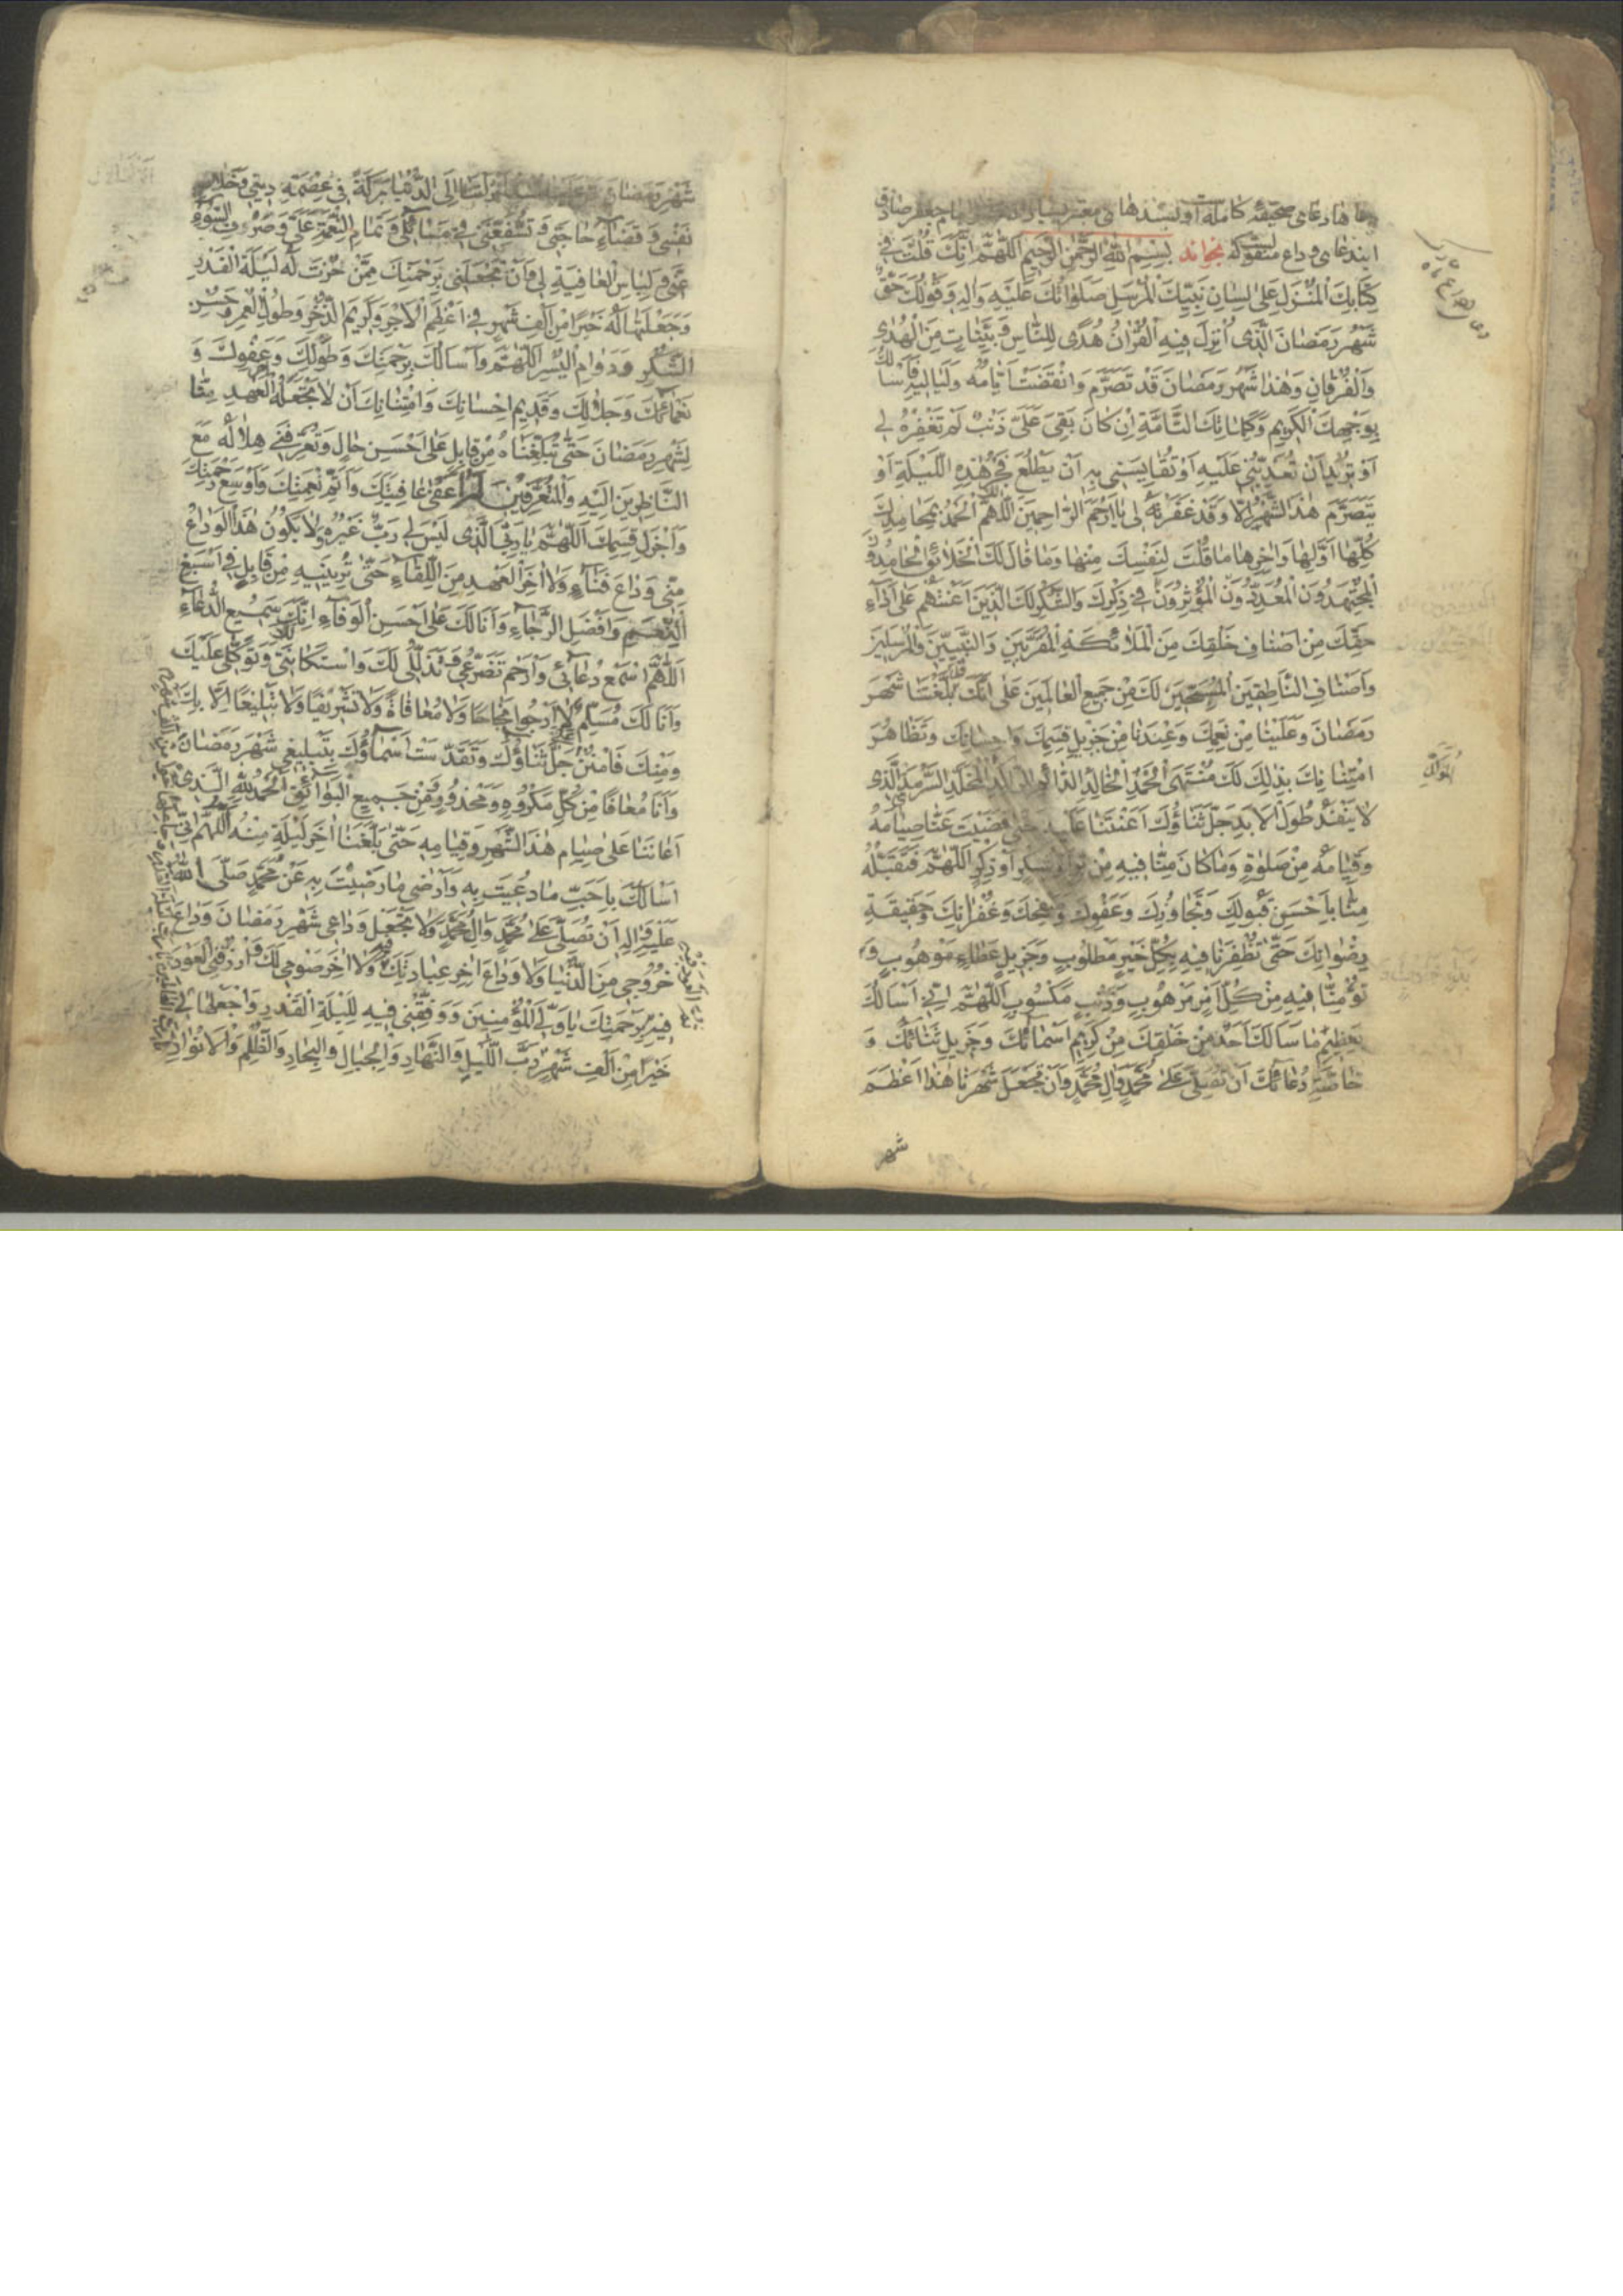 دعاها دعای صحیفهٔ کامله است و بسندهای معتبر بسیار امام جعفر صادق
این دعای وداع منقولست که بخواند بِسْمِ اللّٰهِ الرَّحْمٰنِ الرَّحِیمِ اَللّٰهُمَّ اِنَّكَ قُلْتَ فِی
كِتَابِكَ الْمُنْزَلِ عَلٰی لِسَانِ نَبِیِّكَ الْمُرْسَلِ صَلَوَاتُكَ عَلَیْهِ وَاٰلِهِ وَقَوْلُكَ حَقٌّ
شَهْرُ رَمَضَانَ الَّذِی اُنْزِلَ فِیهِ الْقُرْاٰنُ هُدًی لِلنَّاسِ وَبَیِّنَاتٍ مِنَ الْهُدٰی
وَالْفُرْقَانِ وَهٰذَا شَهْرُ رَمَضَانَ قَدْ تَصَرَّمَ وَانْقَضَتْ اَیَّامُهُ وَلَیَالِیهِ فَاَسْاَلُكَ
بِوَجْهِكَ الْكَرِیمِ وَكَلِمَاتِكَ التَّامَّةِ اِنْ كَانَ بَقِیَ عَلَیَّ ذَنْبٌ لَمْ تَغْفِرْهُ لِی
اَوْ تُرِیدُ اَنْ تُعَذِّبَنِی عَلَیْهِ اَوْ تُقَایِسَنِی بِهِ اَنْ یَطْلُعَ فَجْرُ هٰذِهِ اللَّیْلَةِ اَوْ
یَتَصَرَّمَ هٰذَا الشَّهْرُ اِلَّا وَقَدْ غَفَرْتَهُ لِی یَا اَرْحَمَ الرَّاحِمِینَ اَللّٰهُمَّ لَكَ الْحَمْدُ بِمَحَامِدِكَ
كُلِّهَا اَوَّلِهَا وَاٰخِرِهَا مَا قُلْتَ لِنَفْسِكَ مِنْهَا وَمَا قَالَ لَكَ الْخَلَائِقُ الْحَامِدُونَ
الْمُجْتَهِدُونَ الْمُعَدِّدُونَ الْمُؤْثِرُونَ فِی ذِكْرِكَ وَالشُّكْرِ لَكَ الَّذِینَ اَعَنْتَهُمْ عَلٰی اَدَاءِ
حَقِّكَ مِنْ اَصْنَافِ خَلْقِكَ مِنَ الْمَلَائِكَةِ الْمُقَرَّبِینَ وَالنَّبِیِّینَ وَالْمُرْسَلِینَ
وَاَصْنَافِ النَّاطِقِینَ الْمُسَبِّحِینَ لَكَ مِنْ جَمِیعِ الْعَالَمِینَ عَلٰی اَنَّكَ قَدْ بَلَّغْتَنَا شَهْرَ
رَمَضَانَ وَعَلَیْنَا مِنْ نِعَمِكَ وَعِنْدَنَا مِنْ جَزِیلِ قِسَمِكَ وَاِحْسَانِكَ وَتَظَاهُرِ
امْتِنَانِكَ بِذٰلِكَ لَكَ مُنْتَهَی الْحَمْدِ الْخَالِدِ الدَّائِمِ الْمُخَلَّدِ السَّرْمَدِ الَّذِی
لَا یَنْفَدُ طُولَ الْاَبَدِ جَلَّ ثَنَاؤُكَ اَعَنْتَنَا عَلَیْهِ حَتّٰی قَضَیْتَ عَنَّا صِیَامَهُ
وَقِیَامَهُ مِنْ صَلٰوةٍ وَمَا كَانَ مِنَّا فِیهِ مِنْ بِرٍّ اَوْ شُكْرٍ اَوْ ذِكْرٍ اَللّٰهُمَّ فَتَقَبَّلْهُ
مِنَّا بِاَحْسَنِ قَبُولِكَ وَتَجَاوُزِكَ وَعَفْوِكَ وَصَفْحِكَ وَغُفْرَانِكَ وَحَقِیقَةِ
رِضْوَانِكَ حَتّٰی تُظْفِرَنَا فِیهِ بِكُلِّ خَیْرٍ مَطْلُوبٍ وَجَزِیلِ عَطَاءٍ مَوْهُوبٍ وَ
تُؤْمِنَنَا فِیهِ مِنْ كُلِّ اَمْرٍ مَرْهُوبٍ وَذَنْبٍ مَكْسُوبٍ اَللّٰهُمَّ اِنِّی اَسْاَلُكَ
بِعَظِیمِ مَا سَاَلَكَ اَحَدٌ مِنْ خَلْقِكَ مِنْ كَرِیمِ اَسْمَائِكَ وَجَزِیلِ ثَنَائِكَ وَ
خَاصَّةِ دُعَائِكَ اَنْ تُصَلِّیَ عَلٰی مُحَمَّدٍ وَاٰلِ مُحَمَّدٍ وَاَنْ تَجْعَلَ شَهْرَنَا هٰذَا اَعْظَمَ
شهر
شَهْرِ رَمَضَانَ مَرَّ عَلَیْنَا مُنْذُ اَنْزَلْتَنَا اِلَی الدُّنْیَا بَرَكَةً فِی عِصْمَةِ دِینِی وَخَلَاصِ
نَفْسِی وَقَضَاءِ حَاجَتِی وَتُشَفِّعَنِی فِی مَسَائِلِی وَتَمَامِ النِّعْمَةِ عَلَیَّ وَصَرْفِ السُّوءِ
عَنِّی وَلِبَاسِ الْعَافِیَةِ لِی وَاَنْ تَجْعَلَنِی بِرَحْمَتِكَ مِمَّنْ حُزْتَ لَهُ لَیْلَةَ الْقَدْرِ
وَجَعَلْتَهَا لَهُ خَیْرًا مِنْ اَلْفِ شَهْرٍ فِی اَعْظَمِ الْاَجْرِ وَكَرِیمِ الذُّخْرِ وَطُولِ الْعُمْرِ وَحُسْنِ
الشُّكْرِ وَدَوَامِ الْیُسْرِ اَللّٰهُمَّ وَاَسْاَلُكَ بِرَحْمَتِكَ وَطَوْلِكَ وَعَفْوِكَ وَ
نَعْمَائِكَ وَجَلَالِكَ وَقَدِیمِ اِحْسَانِكَ وَامْتِنَانِكَ اَنْ لَا تَجْعَلَهُ اٰخِرَ الْعَهْدِ مِنَّا
لِشَهْرِ رَمَضَانَ حَتّٰی تُبَلِّغَنَاهُ مِنْ قَابِلٍ عَلٰی اَحْسَنِ حَالٍ وَتُعَرِّفَنِی هِلَالَهُ مَعَ
النَّاظِرِینَ اِلَیْهِ وَالْمُتَعَرِّفِینَ لَهُ فِی اَعْفٰی عَافِیَتِكَ وَاَتَمِّ نِعْمَتِكَ وَاَوْسَعِ رَحْمَتِكَ
وَاَجْزَلِ قِسَمِكَ اَللّٰهُمَّ یَا رَبِّیَ الَّذِی لَیْسَ لِی رَبٌّ غَیْرُهُ وَلَا یَكُونُ هٰذَا الْوَدَاعُ
مِنِّی وَدَاعَ فَنَاءٍ وَلَا اٰخِرَ الْعَهْدِ مِنَ اللِّقَاءِ حَتّٰی تُرِیَنِیهِ مِنْ قَابِلٍ فِی اَسْبَغِ
النِّعَمِ وَاَفْضَلِ الرَّجَاءِ وَاَنَا لَكَ عَلٰی اَحْسَنِ الْوَفَاءِ اِنَّكَ سَمِیعُ الدُّعَاءِ
اَللّٰهُمَّ اسْمَعْ دُعَائِی وَارْحَمْ تَضَرُّعِی وَتَذَلُّلِی لَكَ وَاسْتِكَانَتِی وَتَوَكُّلِی عَلَیْكَ
وَاَنَا لَكَ مُسَلِّمٌ لَا اَرْجُو نَجَاحًا وَلَا مُعَافَاةً وَلَا تَشْرِیفًا وَلَا تَبْلِیغًا اِلَّا بِكَ
وَمِنْكَ فَامْنُنْ جَلَّ ثَنَاؤُكَ وَتَقَدَّسَتْ اَسْمَاؤُكَ بِتَبْلِیغِی شَهْرَ رَمَضَانَ
وَاَنَا مُعَافًا مِنْ كُلِّ مَكْرُوهٍ وَمَحْذُورٍ وَمِنْ جَمِیعِ الْبَوَائِقِ اَلْحَمْدُ لِلّٰهِ الَّذِی
اَعَانَنَا عَلٰی صِیَامِ هٰذَا الشَّهْرِ وَقِیَامِهِ حَتّٰی بَلَّغَنَا اٰخِرَ لَیْلَةٍ مِنْهُ اَللّٰهُمَّ اِنِّی
اَسْاَلُكَ بِاَحَبِّ مَا دُعِیتَ بِهِ وَاَرْضٰی مَا رَضِیتَ بِهِ عَنْ مُحَمَّدٍ صَلَّی اللّٰهُ
عَلَیْهِ وَاٰلِهِ اَنْ تُصَلِّیَ عَلٰی مُحَمَّدٍ وَاٰلِ مُحَمَّدٍ وَلَا تَجْعَلْ وَدَاعِی شَهْرَ رَمَضَانَ وَدَاعَ
خُرُوجِی مِنَ الدُّنْیَا وَلَا وَدَاعَ اٰخِرِ عِبَادَتِكَ فِیهِ وَلَا اٰخِرَ صَوْمِی لَكَ وَارْزُقْنِی الْعَوْدَ
فِیهِ بِرَحْمَتِكَ یَا وَلِیَّ الْمُؤْمِنِینَ وَوَفِّقْنِی فِیهِ لِلَیْلَةِ الْقَدْرِ وَاجْعَلْهَا لِی
خَیْرًا مِنْ اَلْفِ شَهْرٍ رَبَّ اللَّیْلِ وَالنَّهَارِ وَالْجِبَالِ وَالْبِحَارِ وَالظُّلَمِ وَالْاَنْوَارِ